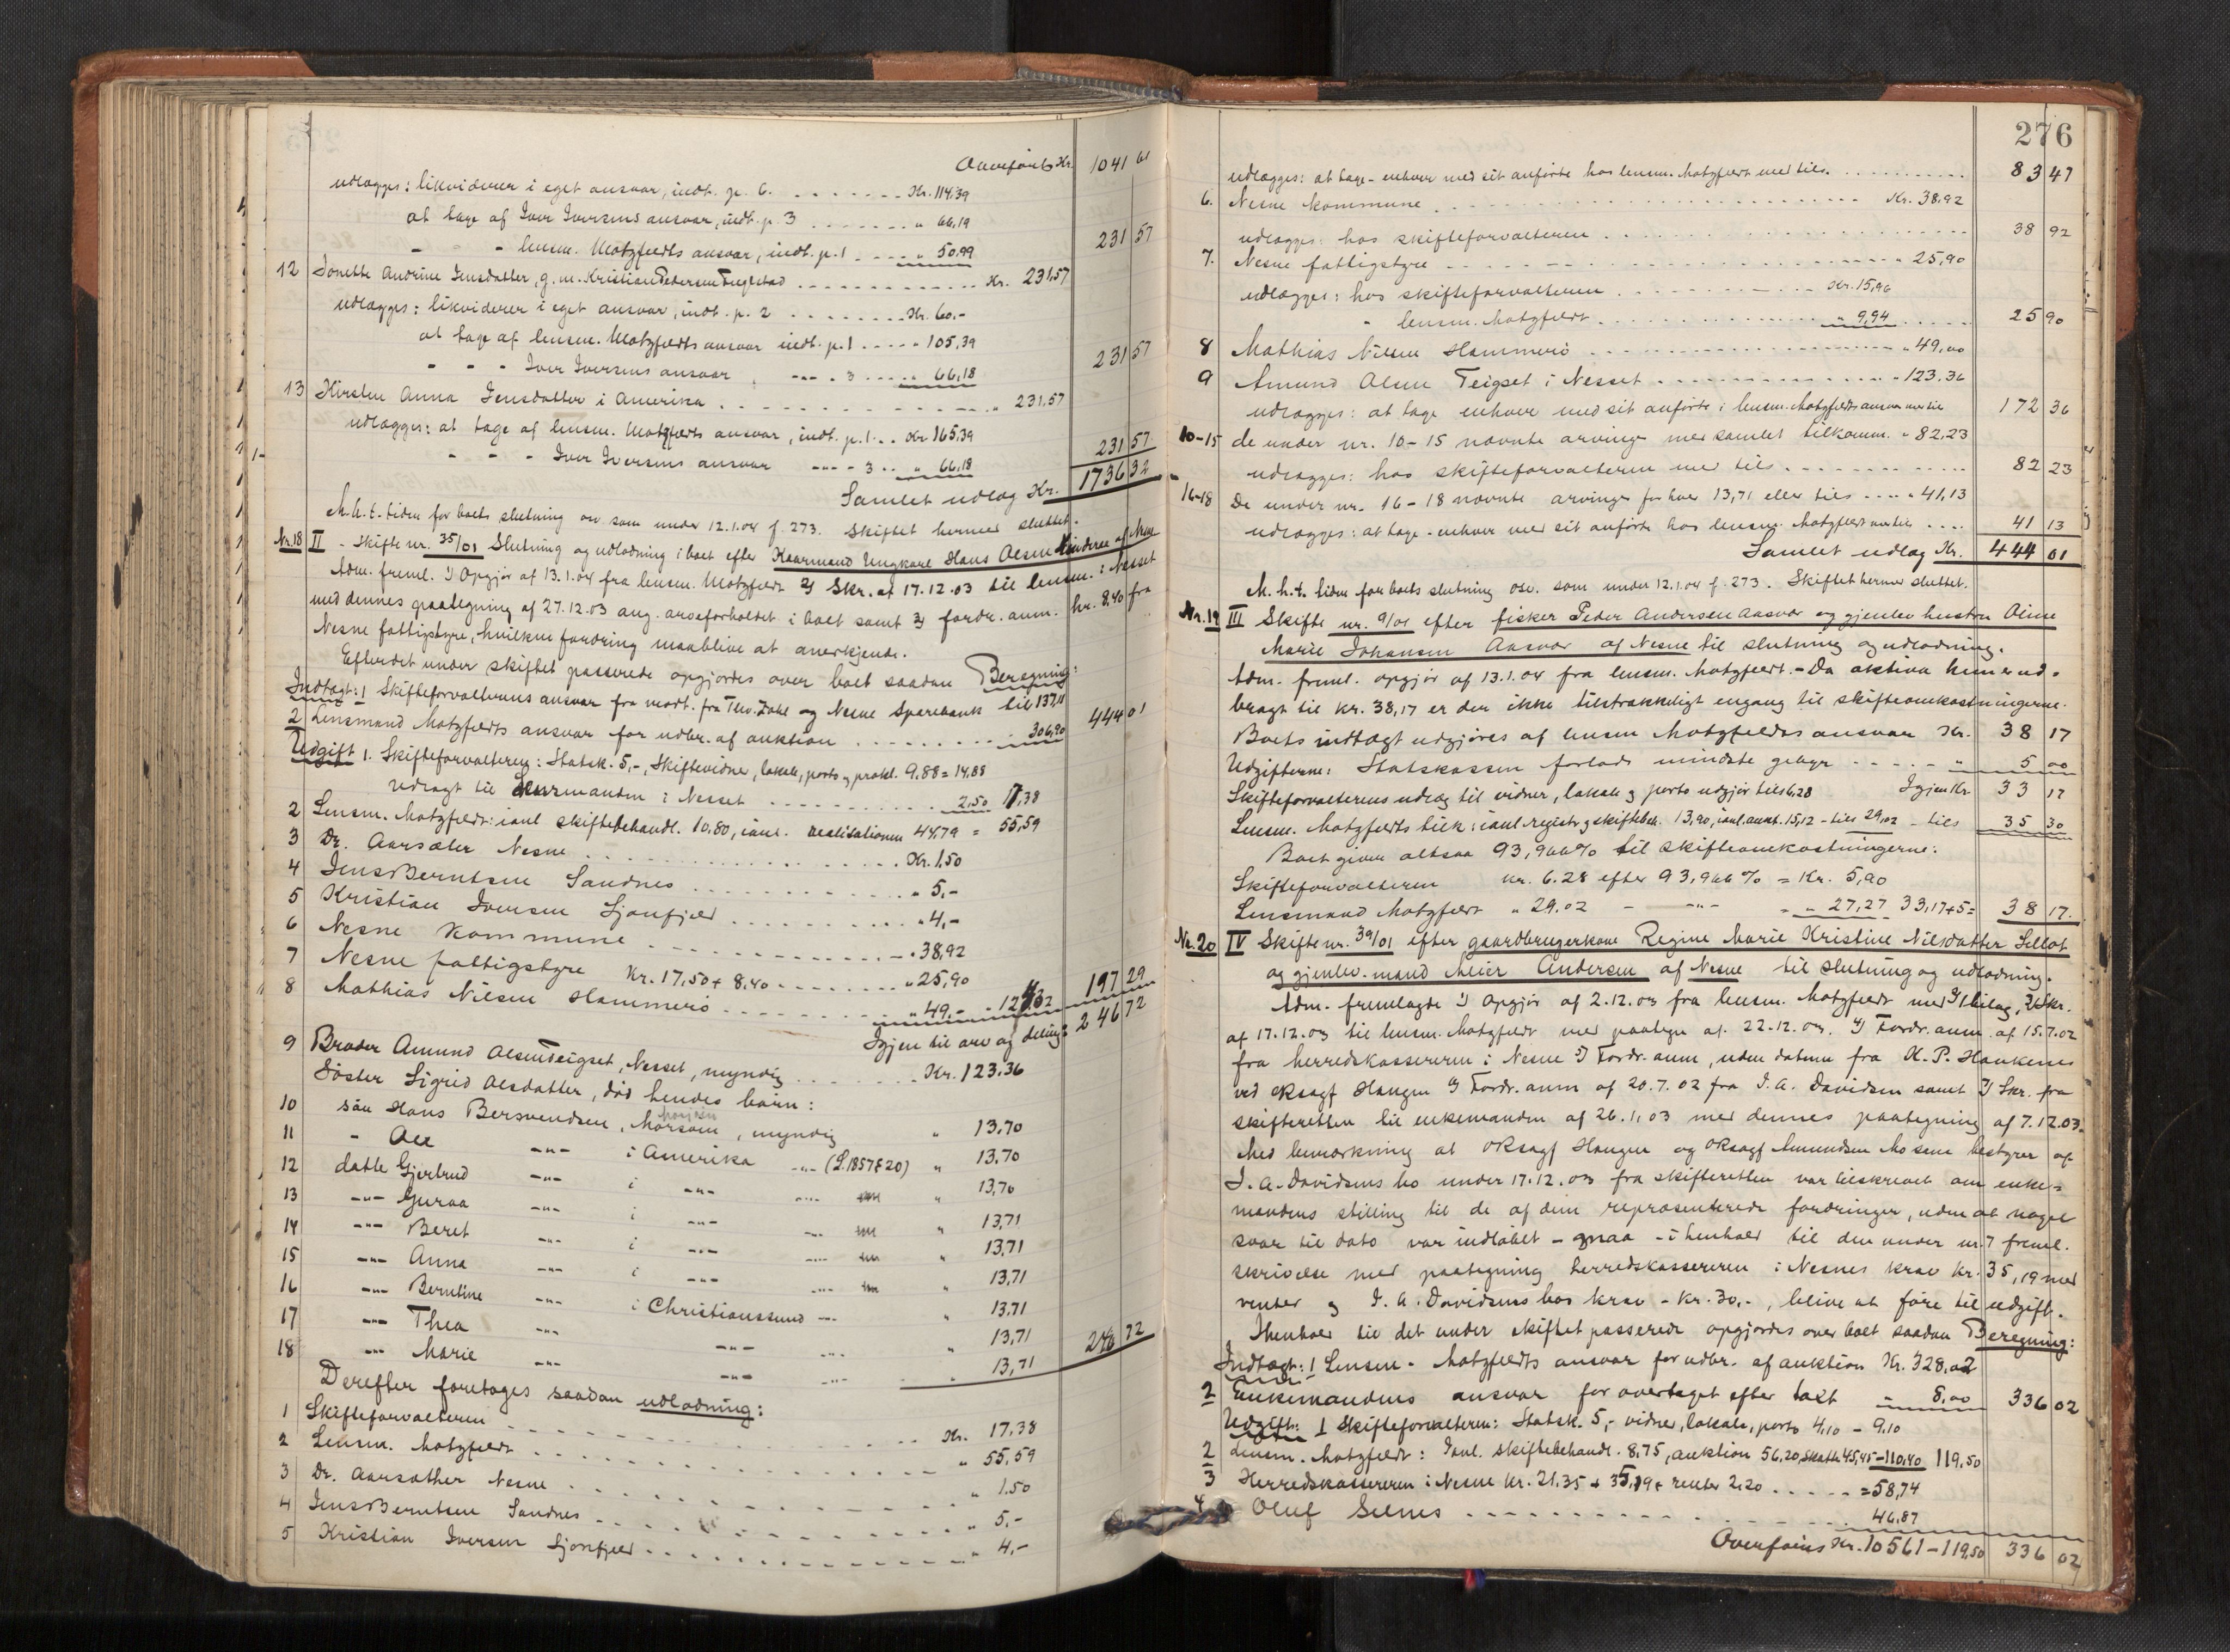 Overført Kr. 1041 61
udlægges: likviderer i eget ansvar, indt. p. 6. Kr. 114,39
at tage af Iver Iversens ansvar, indt. p. 3 " 66,19
- - lensm. Motzfeldts ansvar, indt. p. 1 " 50,99 231 57
12 Jonette Andrine Jensdatter, g. m. Kristian Pedersen Fuglstad Kr. 231,57
udlægges: likviderer i eget ansvar, indt. p. 2 Kr. 60.-
at tage af lensm. Motzfeldts ansvar indt. p. 1 " 105,39
- - - Iver Iversens ansvar -"- - 3 " 66,18 231 57
13 Kirsten Anna Jensdatter i Amerika " 231,57
udlægges: at tage af lensm. Motzfeldts ansvar, indt. p. 1 Kr. 165,39
- - - Iver Iversens ansvar -"- - 3 " 66,18 231 57
Samlet udlæg Kr. 1736 32
M.h.t. tiden for boets slutning osv. som under 12.1.04 f. 273. Skiftet hermed sluttet.
Nr. 18 II - Skifte nr. 35/01 Slutning og udlodning i boet efter Ungkarl Hans Olsen
Adm. freml. 1) Opgjør af 13.1.04 fra lensm. Motzfeldt 2) Skr. af 17.12.03 til lensm. i Nesset
med dennes paategning af 27.12.03 ang. arveforholdet i boet samt 3) fordr. anm. kr. 8,40 fra
Nesne fattigstyre, hvilken fordring maa blive at anerkjende.
Efter det under skiftet passerede opgjordes over boet saadan Beregning:
Indtægt: 1 Skifteforvalterens ansvar fra modt. fra Thv. Zahl og Nesne Sparebank til 137,11
2 Lensmand Motzfeldts ansvar for udbr. af auktion 306,90 444 01
Udgift 1. Skifteforvalteren: Statsk. 5,-, Skiftevidner, lokale, porto og protok. 9,88 = 14,88
Udlagt til Lensmanden i Nesset 2,50 17,38
2 Lensm. Motzfeldt: ianl. skiftebehandl. 10.80, ianl. realisationen 44,79 = 55,59
3 Dr. Aarsæter Nesne Kr. 1,50
4 Jens Berntsen Sandnes " 5,-
5 Kristian Iversen Sjonfjeld " 4,-
6 Nesne Kommune " 38,92
7 Nesne fattigstyre Kr. 17,50 + 8,40 " 25,90
8 Mathias Nilsen Hammerø " 49,- 124,32 197 29
Igjen til arv og deling: 246 72
9 Broder Amund Olsen Teigset, Nesset, myndig Kr. 123.36
Søster Sigrid Olsdatter, død hendes børn:
10 søn Hans Bersvendsen, myndig " 13.70
11 - Ole -"- i Amerika -"- (S. 1857 f 20) " 13,70
12 datte Gjertrud -"- i -"- " 13,70
13 -"- Guraa -"- i -"- " 13,71
14 -"- Beret -"- i -"- " 13,71
15 -"- Anna -"- i -"- " 13,71
16 -"- Berntine -"- i Christianssund -"- " 13,71
17 -"- Thea -"- -"- " 13,71
18 -"- Marie -"- -"- " 13,71 246 72
Derefter foretoges saadan udlodning:
1 Skifteforvalteren Kr. 17,38
2 Lensm. Motzfeldt " 55,59
3 Dr. Aarsæther Nesne " 1.50
4 Jens Berntsen Sandnes " 5,-
5 Kristian Iversen Sjonfjeld " 4,-
276
udlægges: at tage - enhver med sit anførte hos lensm. Motzfeldt med tils. 83 47
6. Nesne kommune Kr. 38,92
udlægges: hos skifteforvalteren 38 92
7. Nesne fattigstyre - 25,90
udlægges: hos skifteforvalteren Kr. 15,96
" lensm. Motzfeldt " 9,94 25 90
8 Mathias Nilsen Hammerø " 49,00
9 Amund Olsen Teigset i Nesset - 123.36
udlægges: at tage enhver med sit anførte i lensm. Motzfeldts ansvar med tils 172 36
10-15 de under nr. 10-15 nævnte arvinge med samlet tilkomm. - 82,23
udlægges: hos skifteforvalteren med tils 82 23
16-18 De under nr. 16-18 nævnte arvinger for hver 13,71 eller tils " 41,13
udlægges: at tage - enhver med sit anførte hos lensm. Motzfeldt med tils 41 13
Samlet udlæg Kr. 444 01
M.h.t. tiden for boets slutning osv. som under 12.1.04 f. 273. Skiftet hermed sluttet.
Nr. 19 III Skifte nr. 9/01 efter fisker Peder Andersen Aasvær og gjenlev hustru Oline
Marie Johansen Aasvær af Nesne til slutning og udlodning.
Adm. freml. opgjør af 13.1.04 fra lensm. Motzfeldt. - Da aktiva kun er ud-
bragt til kr. 38,17 er der ikke tilstrækkeligt engang til skifteomkostningerne.
Boets indtægt udgjøres af lensm Motzfeldts ansvar Kr. 38 17
Udgifterne: Statskassen forlods mindste gebyr " 5 00
Skifteforvalterens udlæg til vidner, lokale og porto udgjør tils 6,28 Igjen Kr. 33 17
Lensm. Motzfeldts tilk: ianl. registr. og skiftebeh. 13,90, ianl. aukt. 15,12 - tils 29,02 - tils 35 30
Boet giver altsaa 93,966% til skifteomkostningerne:
Skifteforvalteren kr. 6.28 efter 93,966% = Kr. 5,90
Lensmand Motzfeldt " 29.02 - -"- " 27,27 33,17+5= 38 17.
Nr. 20 IV Skifte nr. 39/01 efter gaardbrugerkone Regine Marie Kristine Nilsdatter
og gjenlev. mand Meier Andersen af Nesne til slutning og udlodning.
Adm. fremlagde 1) Opgjør af 2.12.03 fra lensm. Motzfeldt med 1 bilag, 2) Skr.
af 17.12.03 til lensm. Motzfeldt med paategn af 22.12.03. Fordr. anm. af 15.7.02
fra herredskassereren i Nesne Fordr. anm, uden datum fra
ved oksagf Haugen Fordr. anm af 20.7.02 fra J. A. Davidsen samt 7) Skr. fra
skifteretten til enkemanden af 26.11.03 med dennes paategning af 7.12.03.
Med bemærkning at oksagf Haugen og oksagf Amundsen Mo som bestyrer af
J. A. Davidsens bo under 17.12.03 fra skifteretten var tilskrevet om enke-
mandens stilling til de af dem repræsenterede fordringer, uden at noget
svar til dato var indløbet - maa - i henhold til den under nr. 7 freml.
skrivelse med paategning herredskassereren i Nesnes krav kr. 35,19 med
renter og J. A. Davidsens bos krav - Kr. 30.-, blive at føre til udgift.
I henhold til det under skiftet passerede opgjordes over boet saadan Beregning:
Indtægt: 1 Lensm. Motzfeldts ansvar for udbr. af auktion Kr. 328,02
2 Enkemandens ansvar for overtaget efter takt " 8,00 336 02
Udgift: 1 Skifteforvalteren: Statsk. 5,- vidner, lokale, porto 4,10 - 9,10
2 Lensm. Motzfeldt: Ianl. skiftebehandl. 8,75, auktion 56,20, skatte 45,45 - 110,40 119,50
3 Herredskassereren i Nesne kr. 21,35 + 35,19 + renter 2,20 = 58,74
4 Oluf Selnes 46,87
Overføres Kr. 105 61 - 119,50 336 02